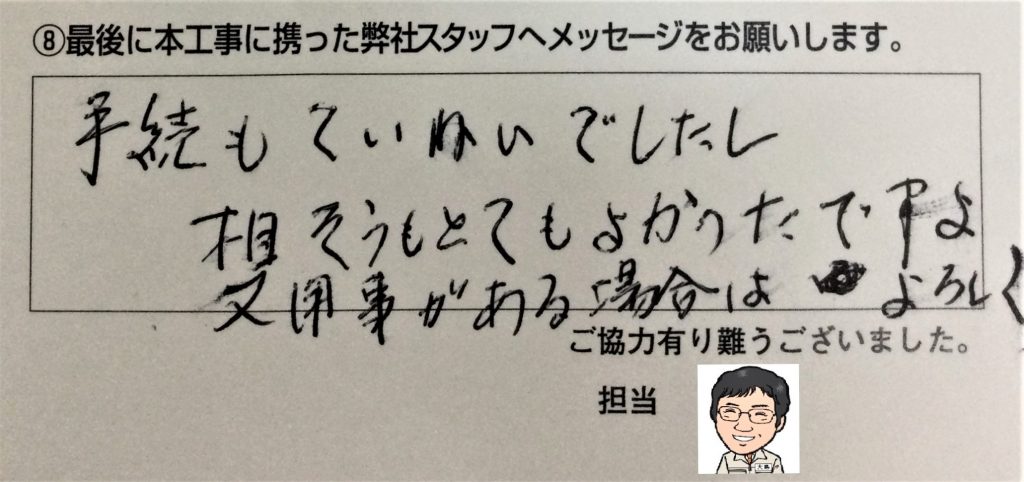 ⑧最後に本工事に携った弊社スタッフへメッセージをお願いします。
手続もていねいでしたし
相そうもとてもよかったですよ
又用事がある場合は よろしく
ご協力有り難うございました。
担当